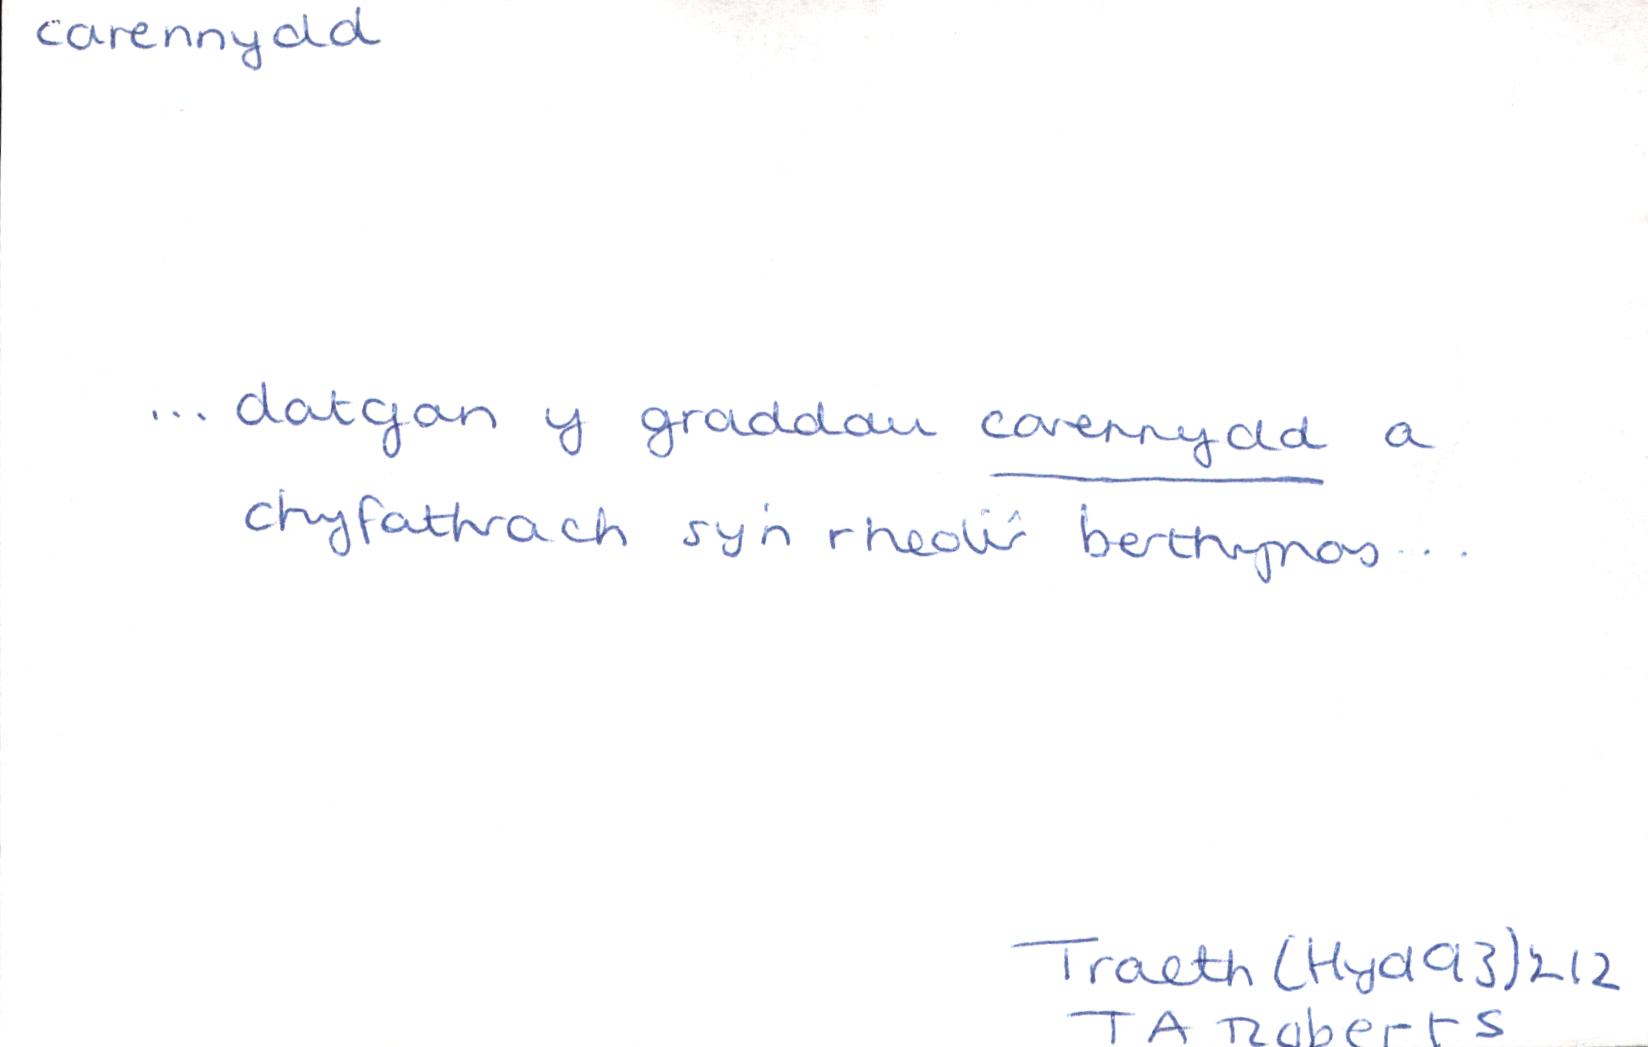 carennydd
... datgan y graddau carennydd a
chyfathrach sy'n rheoli'r berthynas...
Traeth (Hyd 93) 212
TA Roberts